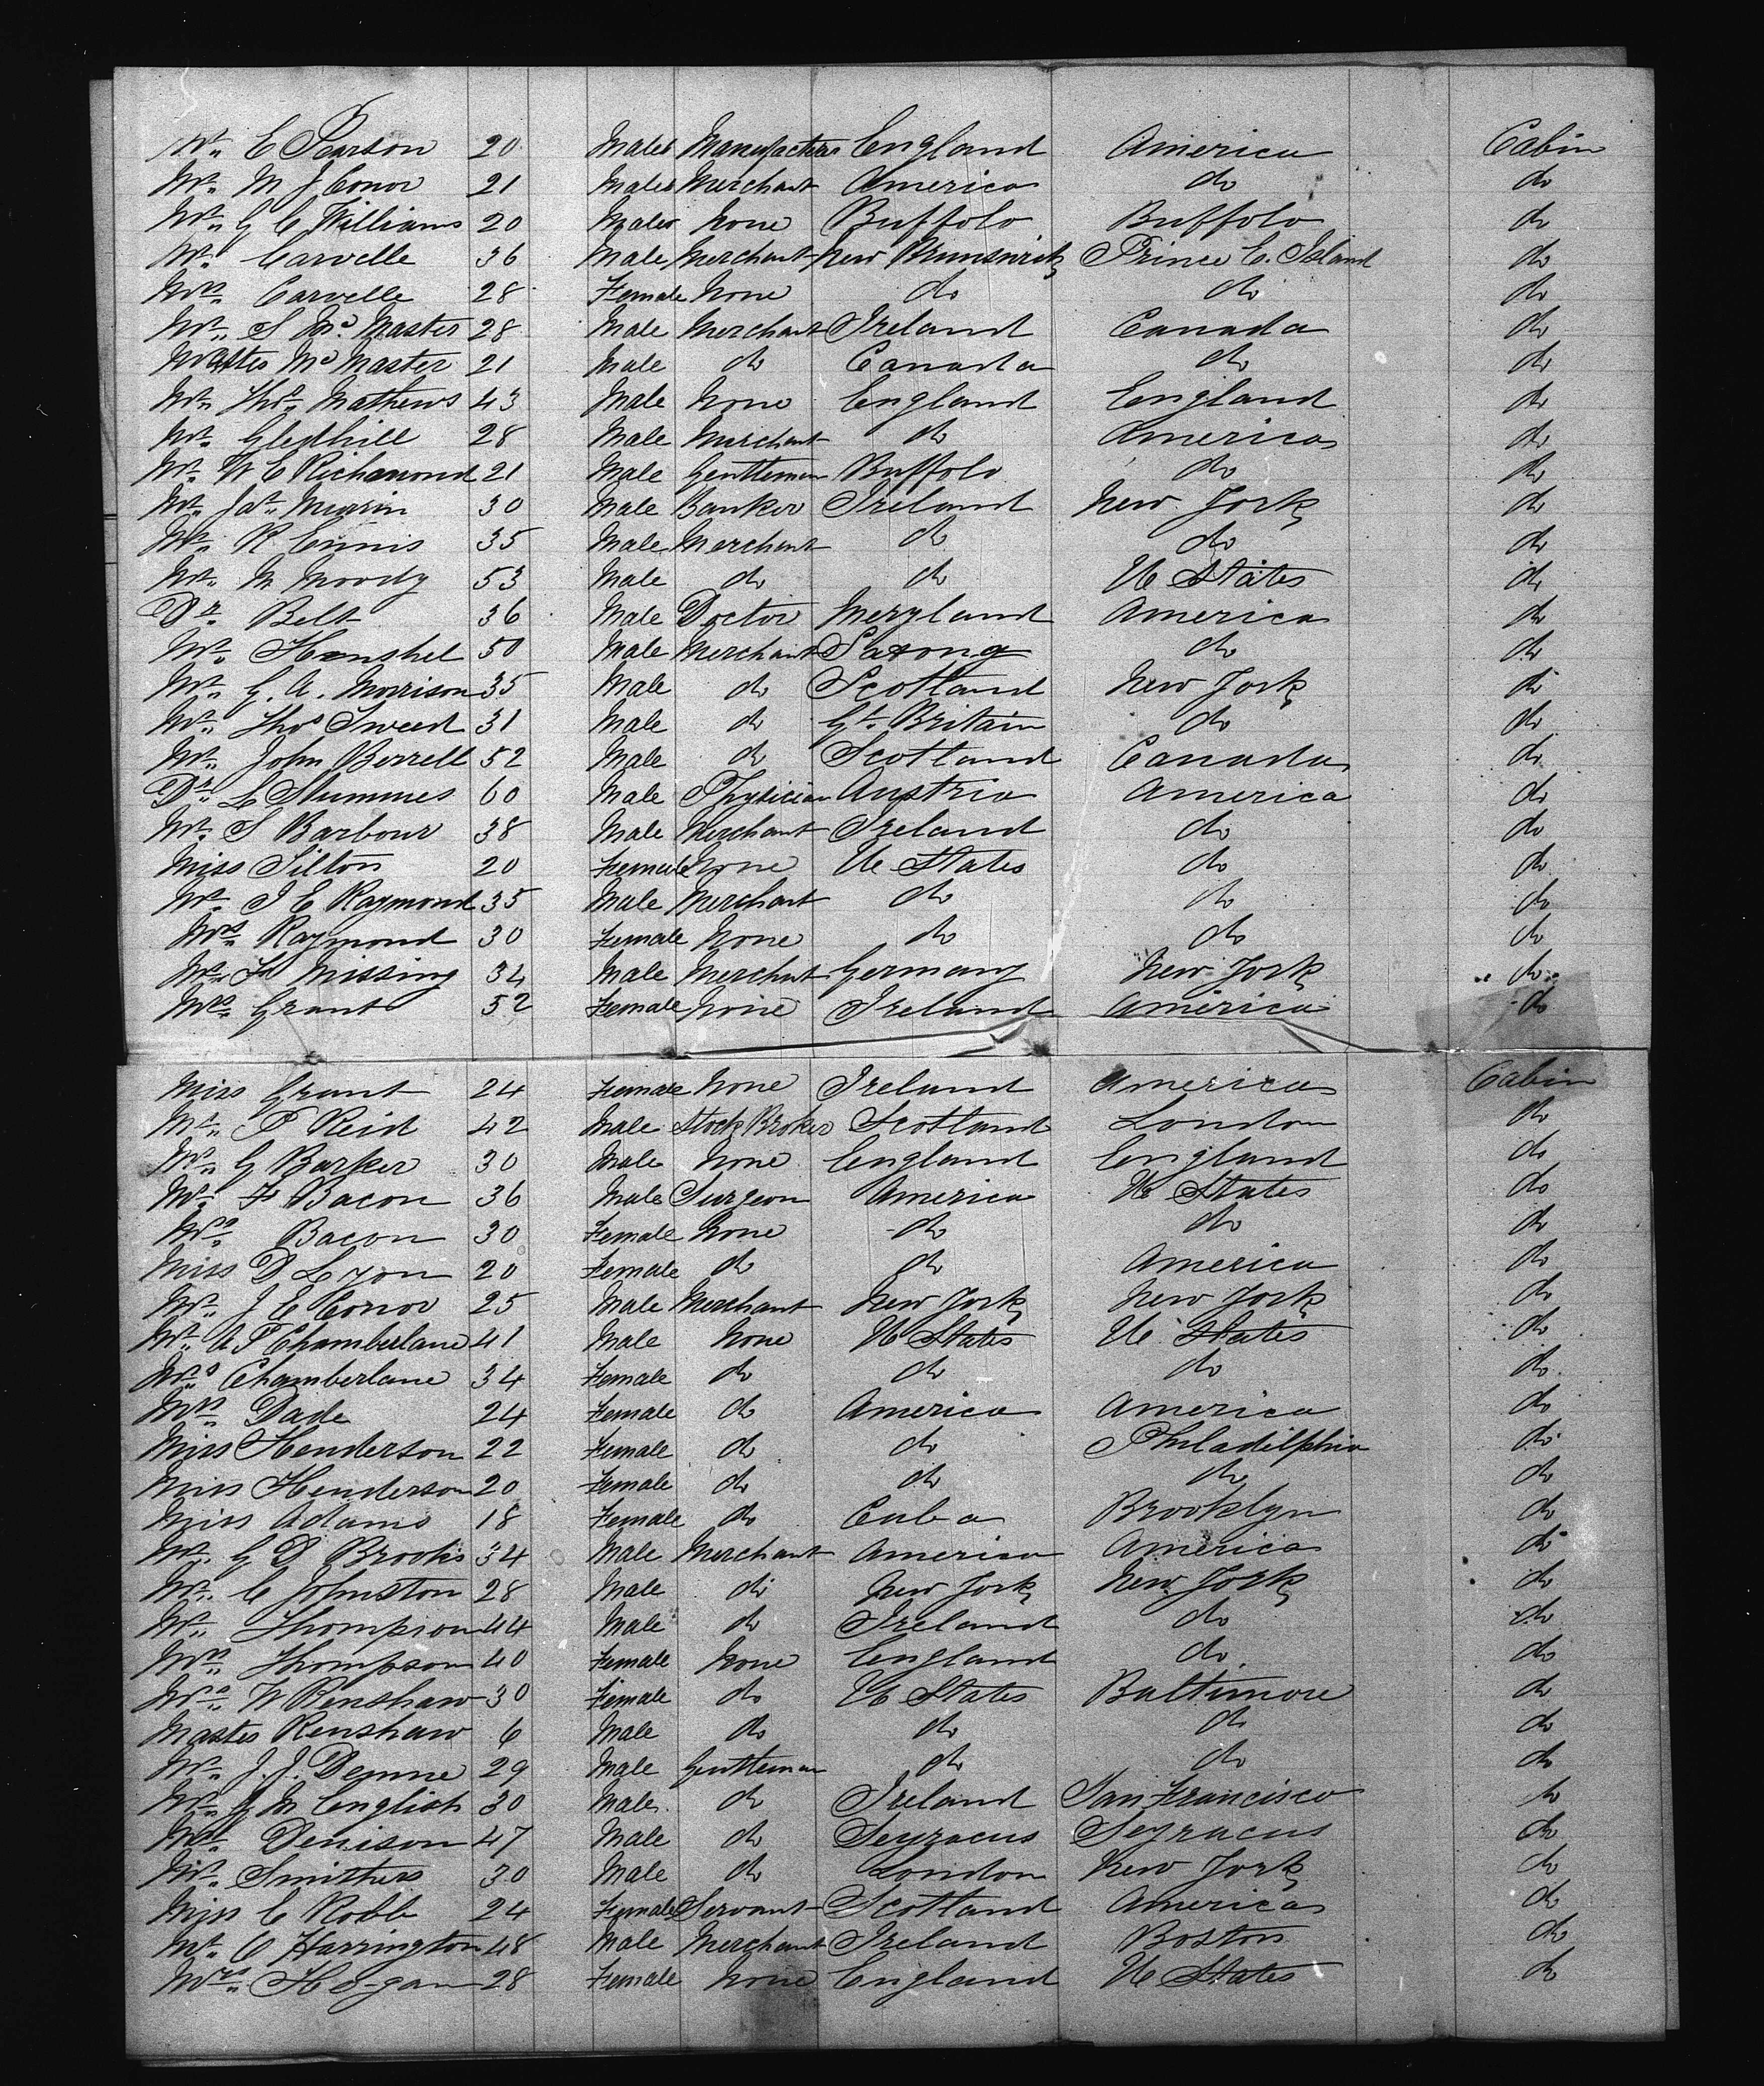 Mr. E Pearson 20 Males Manufacturer England America Cabin
Mr. M J Conor 21 Males Merchant America do do
Mr. G C Williams 20 Males None Buffolo Buffolo do
Mr. Carvelle 36 Male Merchant New Brunswick Prince E. Island do
Mrs. Carvelle 28 Female None do do do
Mr. S Mc Master 28 Male Merchant Ireland Canada do
Master Mc Master 21 Male do Canada do do
Mr. Thos. Mathews 43 Male None England England do
Mr. Gledhill 28 Male Merchant do America do
Mr. W C Richamond 21 Male Gentleman Buffolo do do
Mr. Jas. 30 Male Banker Ireland New York do
Mr. R Ennis 35 Male Merchant do do do
Mr. M Moody 53 Male do do U States do
Dr. Belt 36 Male Doctor Meryland America do
Mr. Henshel 50 Male Merchant Saxony do do
Mr. G. A. Morrison 35 Male do Scotland New York do
Mr. Thos Sweed 31 Male do Gt. Britain do do
Mr. John Berrell 52 Male do Scotland Canada do
Dr. L 60 Male Physician Austria America do
Mr. S Barbour 38 Male Merchant Ireland do do
Miss Silton 20 Female None U States do do
Mr. I E Raymond 35 Male Merchant do do do
Mrs. Raymond 30 Female None do do do
Mr. H Missing 34 Male Merchant Germany New York do
Mrs. Grant 52 Female None Ireland America do
Miss Grant 24 Female None Ireland America Cabin
Mr. P Reid 42 Male Stock Broker Scotland London do
Mr. G Barker 30 Male None England England do
Mr. F Bacon 36 Male Surgeon America U States do
Mrs. Bacon 30 Female None do do do
Miss D Lyon 20 Female do do America do
Mr. J E Conor 25 Male Merchant New York New York do
Mr. A P Chamberlane 41 Male None U States U States do
Mrs. Chamberlane 34 Female do do do do
Mrs. Dade 24 Female do America America do
Miss Henderson 22 Female do do Philadilphia do
Miss Henderson 20 Female do do do do
Miss Adams 18 Female do Cuba Brooklyn do
Mr. G D Brooks 34 Male Merchant America America do
Mr. C Johnston 28 Male do New York New York do
Mr. Thompson 44 Male do Ireland do do
Mrs. Thompson 40 Female None England do do
Mrs. W Renshaw 30 Female do U States Baltimore do
Master Renshaw 6 Male do do do do
Mr. J. J. 29 Male Gentleman do do do
Mr. J M English 30 Male do Ireland San Francisco do
Mr. Denison 47 Male do Seyracus Seyracus do
Mr. Smithers 30 Male do London New York do
Miss C Robb 24 Female Servant Scotland America do
Mr. C Harrington 48 Male Merchant Ireland Boston do
Mrs. Hogan 28 Female None England U States do